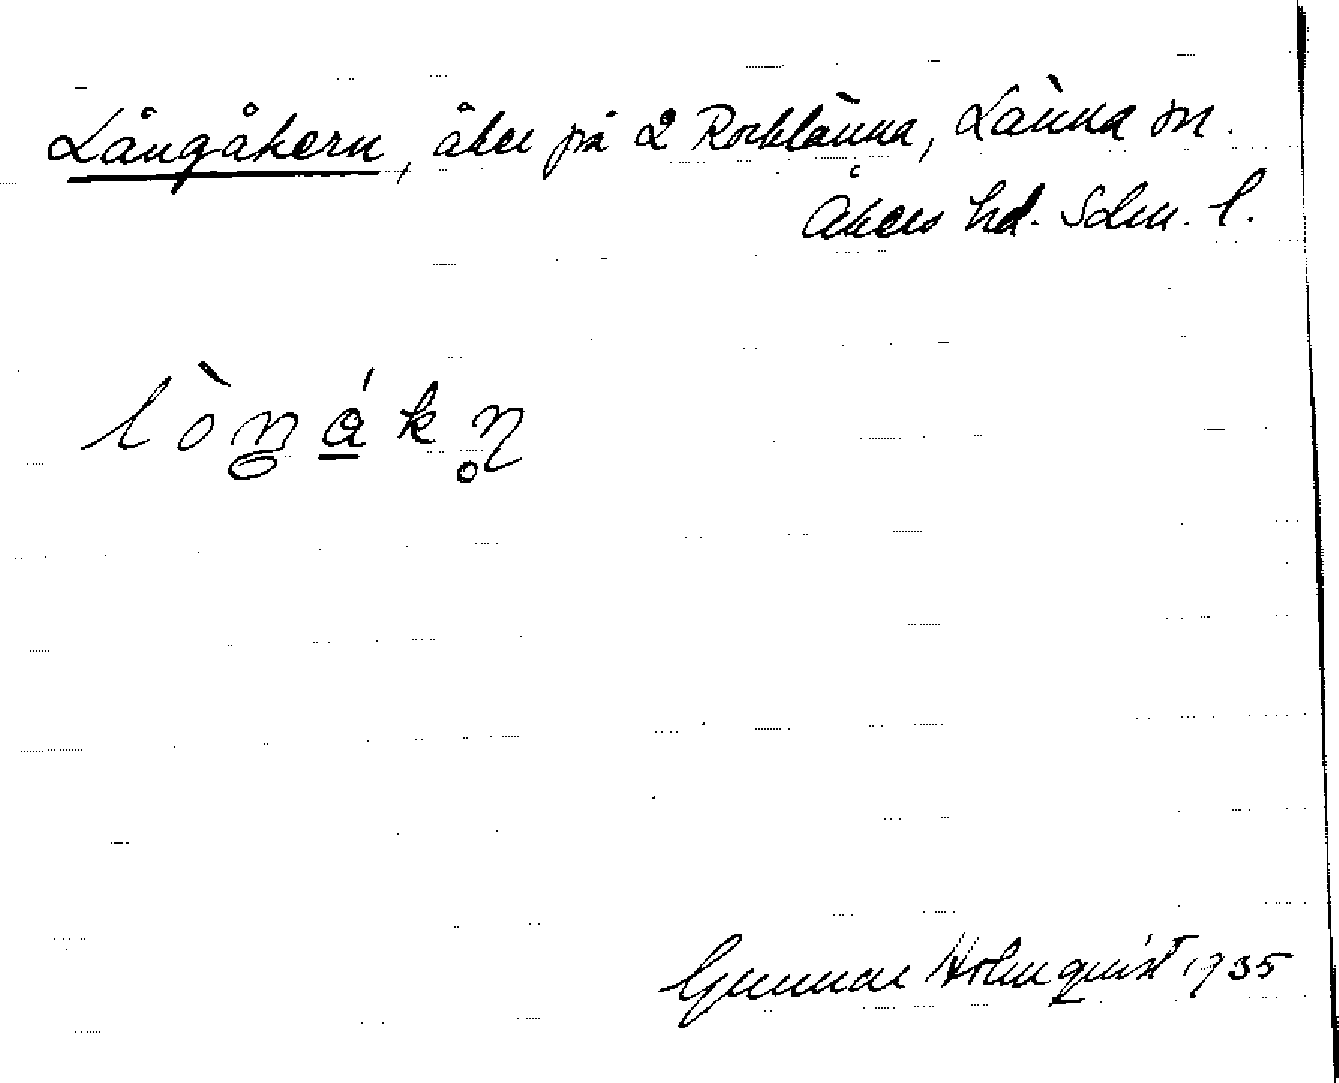 Långåkern, åker på 2 Rocklänna, Länna sn.
Åkers hd. Sdm. l.
Gunnar Holmquist 1935